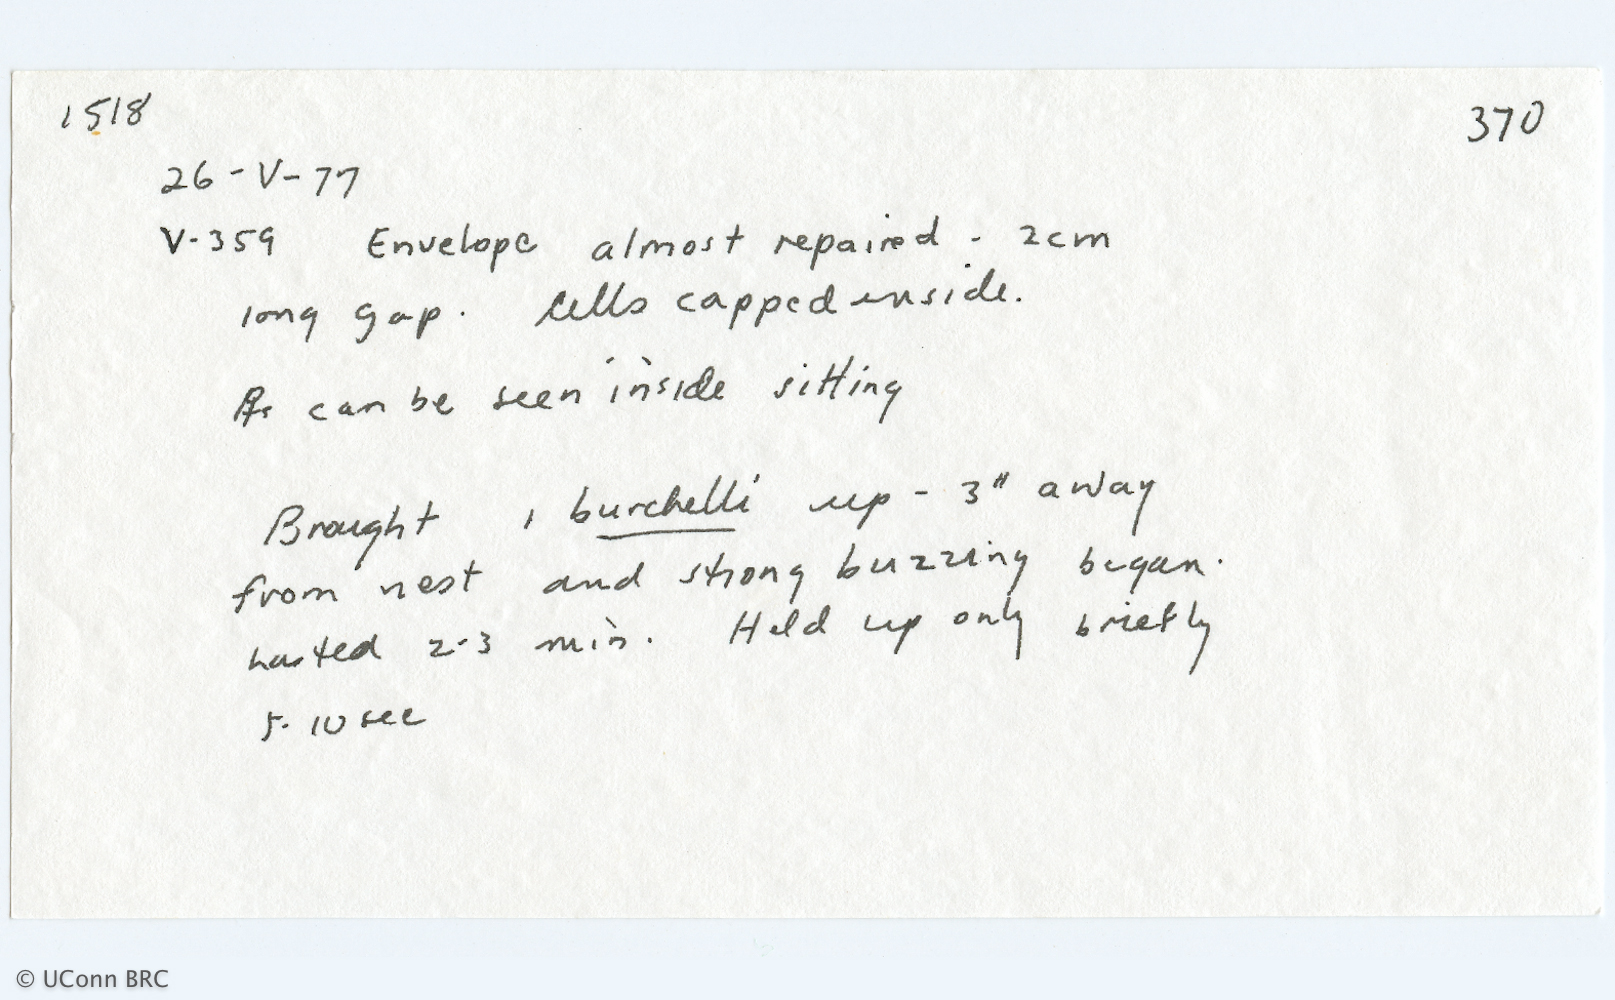 1518
370
26-V-77
V-359 Envelope almost repaired - 2cm
long gap. Cells capped inside.
can be seen inside sitting
Brought 1 burchelli up - 3" away
from nest and strong buzzing began.
hasted 2-3 min. Held up only briefly
5-10 sec
© UConn BRC